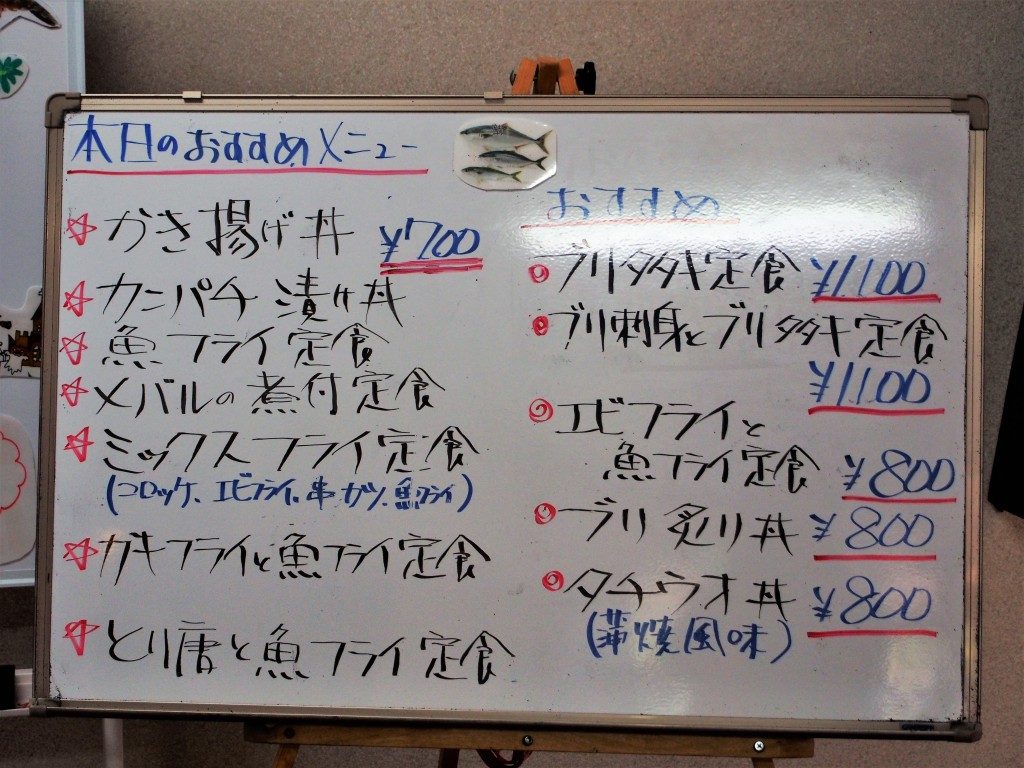 本日のおすすめメニュー
☆かき揚げ丼 ¥700
☆カンパチ漬け丼
☆魚フライ定食
☆メバルの煮付定食
☆ミックスフライ定食
(コロッケ、エビフライ、串カツ、魚フライ)
☆カキフライと魚フライ定食
☆とり唐と魚フライ定食
おすすめ
◎ブリタタキ定食 ¥1100
◎ブリ刺身とブリタタキ定食
¥1100
◎エビフライと
魚フライ定食 ¥800
◎ブリ炙り丼 ¥800
◎タチウオ丼 ¥800
(蒲焼風味)